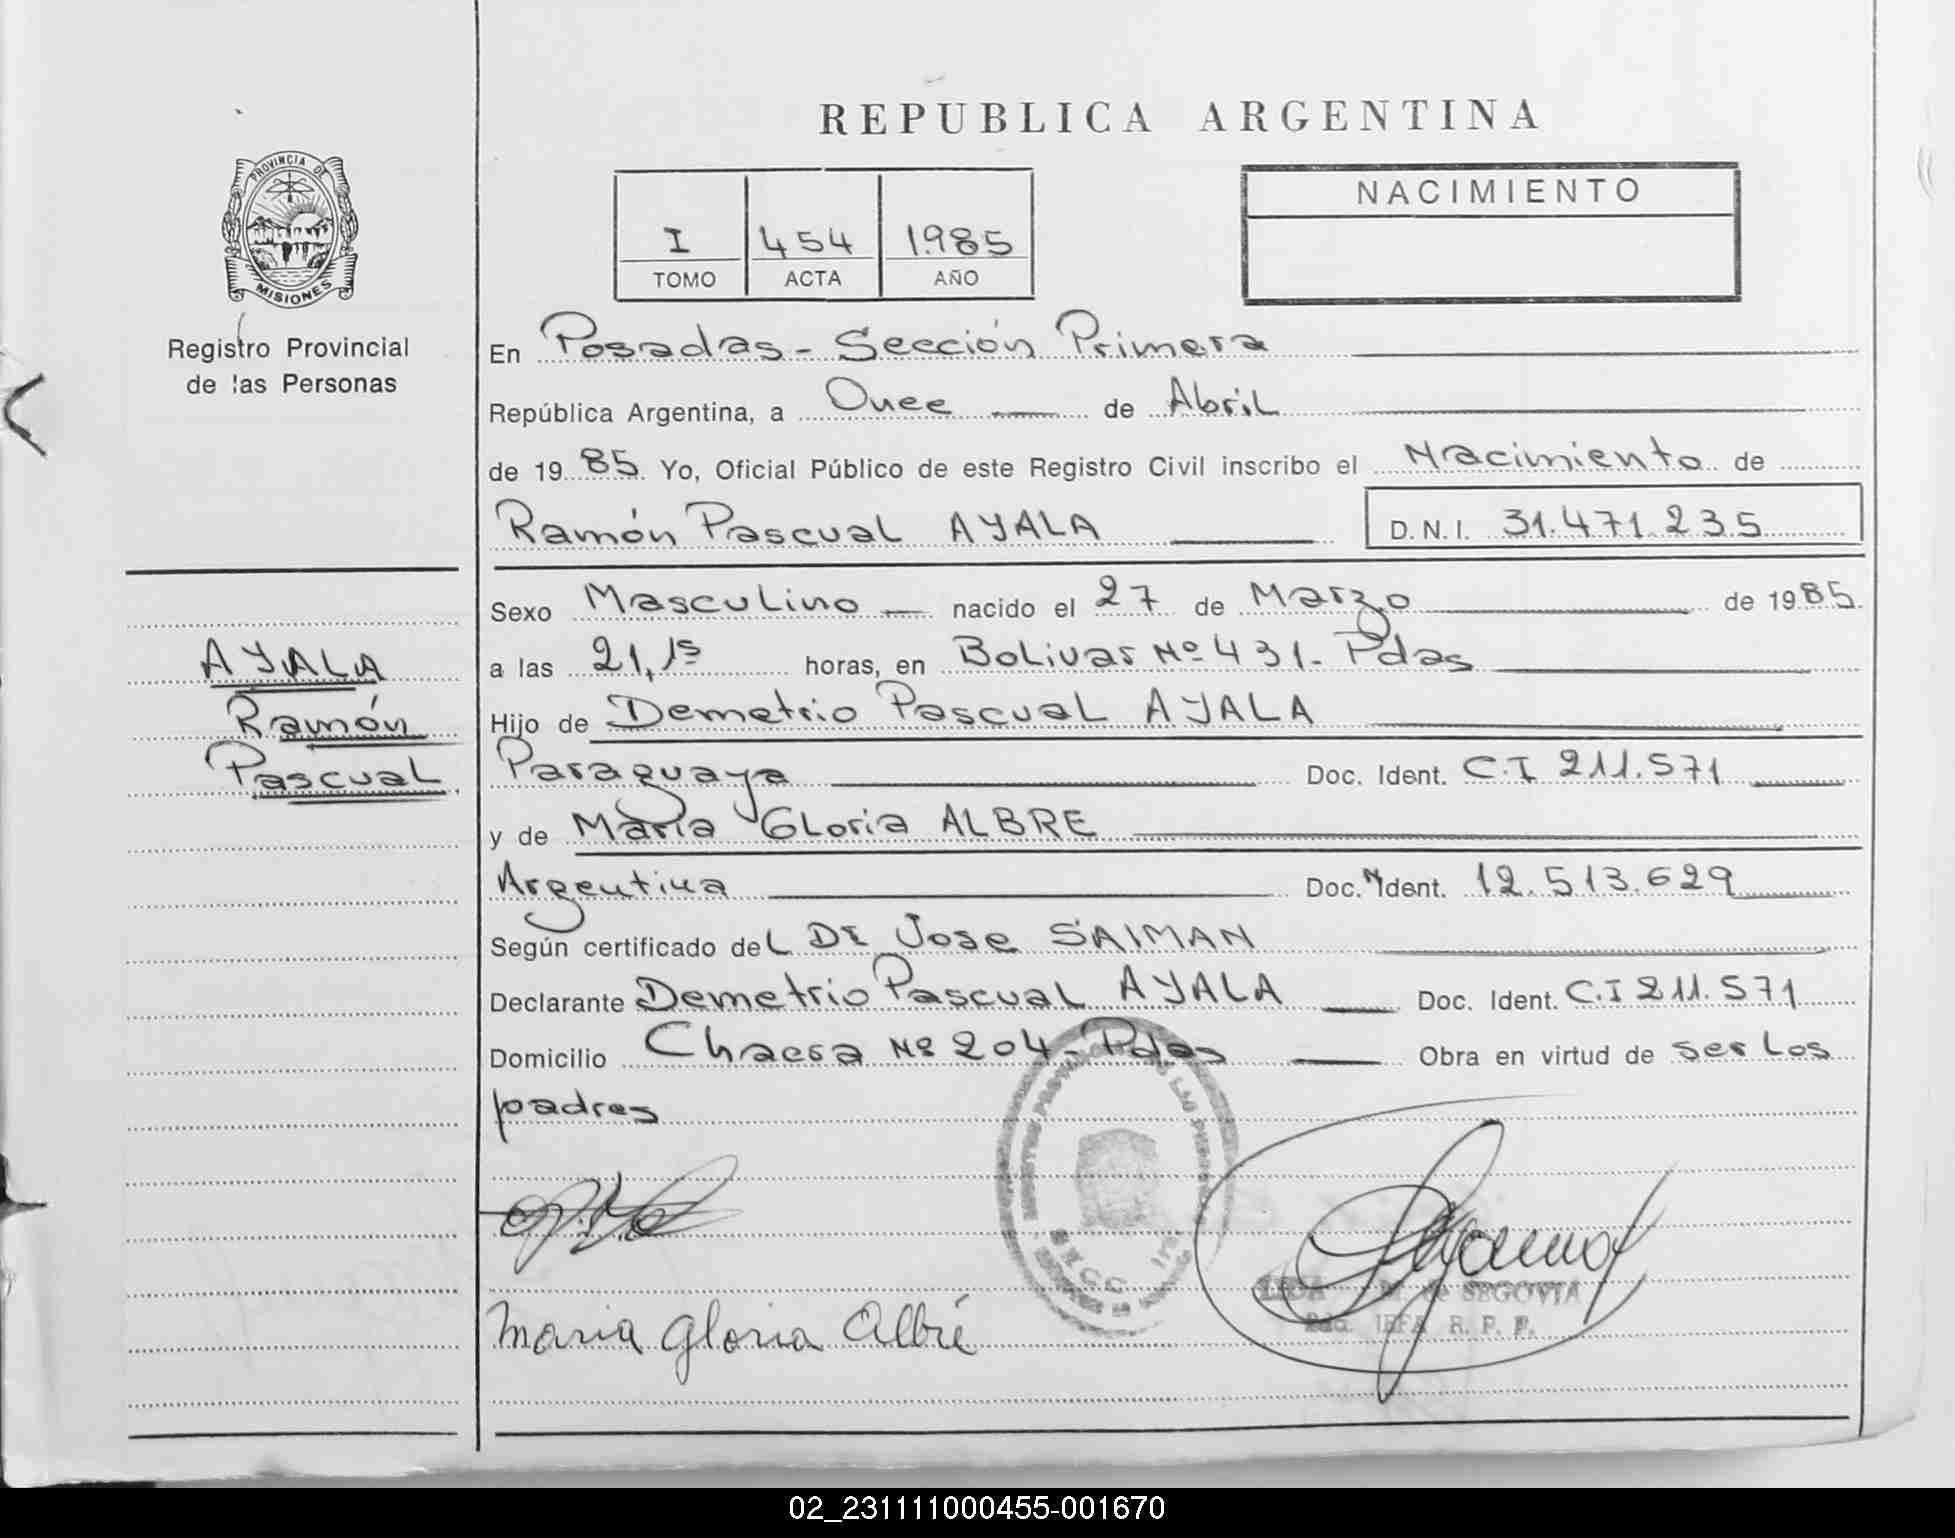 REPUBLICA ARGENTINA
PROVINCIA DE
MISIONES
Registro Provincial
de las Personas
I 454 1985
TOMO ACTA AÑO
NACIMIENTO
En Posadas - Sección Primera
República Argentina, a Once de Abril
de 1985 Yo, Oficial Público de este Registro Civil inscribo el Nacimiento de
Ramón Pascual AYALA D.N.I. 31.471.235
Sexo Masculino nacido el 27 de Marzo de 1985.
AYALA
Ramón
Pascual
a las 21,15 horas, en Bolivar Nº 431 - Pdas
Hijo de Demetrio Pascual AYALA
Paraguaya Doc. Ident. C.I 211.571
y de María Gloria ALBRE
Argentina Doc. N Ident. 12.513.629
Según certificado del Dr Jose SAIMAN
Declarante Demetrio Pascual AYALA Doc. Ident. C.I 211.571
Domicilio Chacra Nº 204 - Pdas Obra en virtud de ser los
padres
de SEGOVIA
JEFA R. P. P.
Maria Gloria Albré
02_231111000455-001670